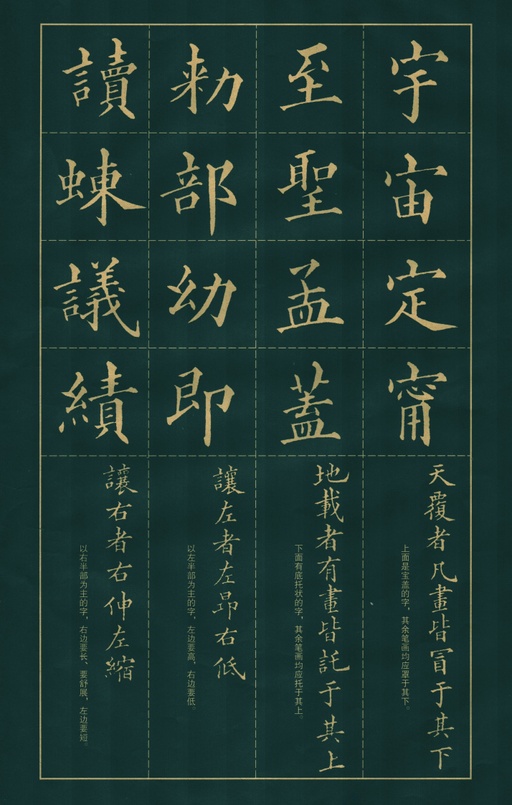 宇宙定甯
天覆者凡畫皆冒于其下
上面是宝盖的字，其余笔画均应罩于其下。
至聖孟蓋
地載者有畫皆託于其上
下面有底托状的字，其余笔画均应托于其上。
勑部幼即
讓左者左昂右低
以左半部为主的字，左边要高，右边要低。
讀蝀議績
讓右者右伸左縮
以右半部为主的字，右边要长、要舒展，左边要短。